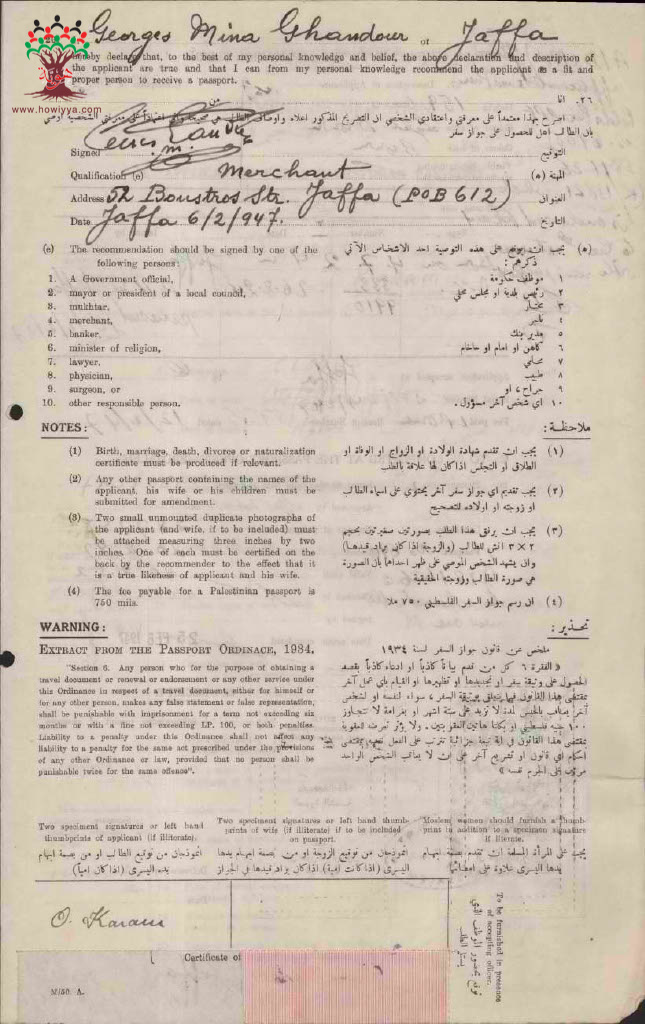 Georges Mina Ghandour of Jaffa
hereby declare that, to the best of my personal knowledge and belief, the above declaration and description of
the applicant are true and that I can from my personal knowledge recommend the applicant as a fit and
proper person to receive a passport.
www.howiyya.com
٢٦. انا
من
اصرح بهذا معتمداً على معرفتي واعتقادي الشخصي ان التصريح المذكور اعلاه واوصاف الطالب هي صحيحة
على معرفتي الشخصية اوصي
بان الطالب اهل للحصول على جواز سفر
Signed
التوقيع
Qualification (e) Merchant
المهنة (ه)
Address 52 Boustros Str. Jaffa (POB 612)
العنوان
Date Jaffa 6/2/947.
التاريخ
(e) The recommendation should be signed by one of the
following persons:
1. A Government official,
2. mayor or president of a local council,
3. mukhtar,
4. merchant,
5. banker,
6. minister of religion,
7. lawyer,
8. physician,
9. surgeon, or
10. other responsible person.
(ه) يجب ان يوقع على هذه التوصية احد الاشخاص الآتي
ذكرهم:
١ موظف حكومة
٢ رئيس بلدية او مجلس محلي
٣ مختار
٤ تاجر
٥ مدير بنك
٦ كاهن او امام او حاخام
٧ محامي
٨ طبيب
٩ جراح، او
١٠ اي شخص آخر مسؤول.
NOTES:
(1) Birth, marriage, death, divorce or naturalization
certificate must be produced if relevant.
(2) Any other passport containing the names of the
applicant, his wife or his children must be
submitted for amendment.
(3) Two small unmounted duplicate photographs of
the applicant (and wife, if to be included) must
be attached measuring three inches by two
inches. One of each must be certified on the
back by the recommender to the effect that it
is a true likeness of applicant and his wife.
(4) The fee payable for a Palestinian passport is
750 mils.
ملاحظة:
(١) يجب ان تقدم شهادة الولادة او الزواج او الوفاة او
الطلاق او التجنس اذا كان لها علاقة بالطلب
(٢) يجب تقديم اي جواز سفر آخر يحتوي على اسماء الطالب
او زوجته او اولاده للتصحيح
(٣) يجب ان يرفق هذا الطلب بصورتين صغيرتين بحجم
٢ × ٣ انش للطالب (والزوجة اذا كان يراد قيدها)
وان يشهد الشخص الموصي على ظهر احداهما بان الصورة
هي صورة الطالب وزوجته الحقيقية
(٤) ان رسم جواز السفر الفلسطيني ٧٥٠ ملا
WARNING:
EXTRACT FROM THE PASSPORT ORDINACE, 1934.
"Section 6. Any person who for the purpose of obtaining a
travel document or renewal or endorsement or any other service under
this Ordinance in respect of a travel document, either for himself or
for any other person, makes any false statement or false representation,
shall be punishable with imprisonment for a term not exceeding six
months or with a fine not exceeding LP. 100, or both penalties.
Liability to a penalty under this Ordinance shall not affect any
liability to a penalty for the same act prescribed under the provisions
of any other Ordinance or law, provided that no person shall be
punishable twice for the same offence".
تحذير:
ملخص عن قانون جواز السفر لسنة ١٩٣٤
«الفقرة ٦ كل من قدم بياناً كاذباً او ادعاء كاذباً بقصد
الحصول على وثيقة سفر او تجديدها او تظهيرها او القيام باي عمل آخر
بمقتضى هذا القانون فيما يتعلق بوثيقة السفر، سواء لنفسه او لشخص
آخر يعاقب بالحبس لمدة لا تزيد على ستة اشهر او بغرامة لا تتجاوز
١٠٠ جنيه فلسطيني او بكلتا هاتين العقوبتين. ولا يؤثر
احكام اي قانون او تشريع آخر على ان لا يعاقب الشخص الواحد
مرتين على الجرم نفسه»
Two specimen signatures or left hand
thumbprints of applicant (if illiterate).
Two specimen signatures or left hand thumb-
prints of wife (if illiterate) if to be included
on passport.
Moslem women should furnish a thumb-
print in addition to a specimen signature
if literate.
انموذجان من توقيع الطالب او من بصمة ابهام
يده اليسرى (اذا كان امياً)
انموذجان من توقيع الزوجة او من بصمة ابهام يدها
اليسرى (اذا كانت امية) اذا كان يراد قيدها في الجواز
يجب على المرأة المسلمة ان تقدم بصمة ابهام
يدها اليسرى علاوة على امضائها
O. Karam
To be furnished in presence
of accepting officer.
Certificate of
M/50 A.